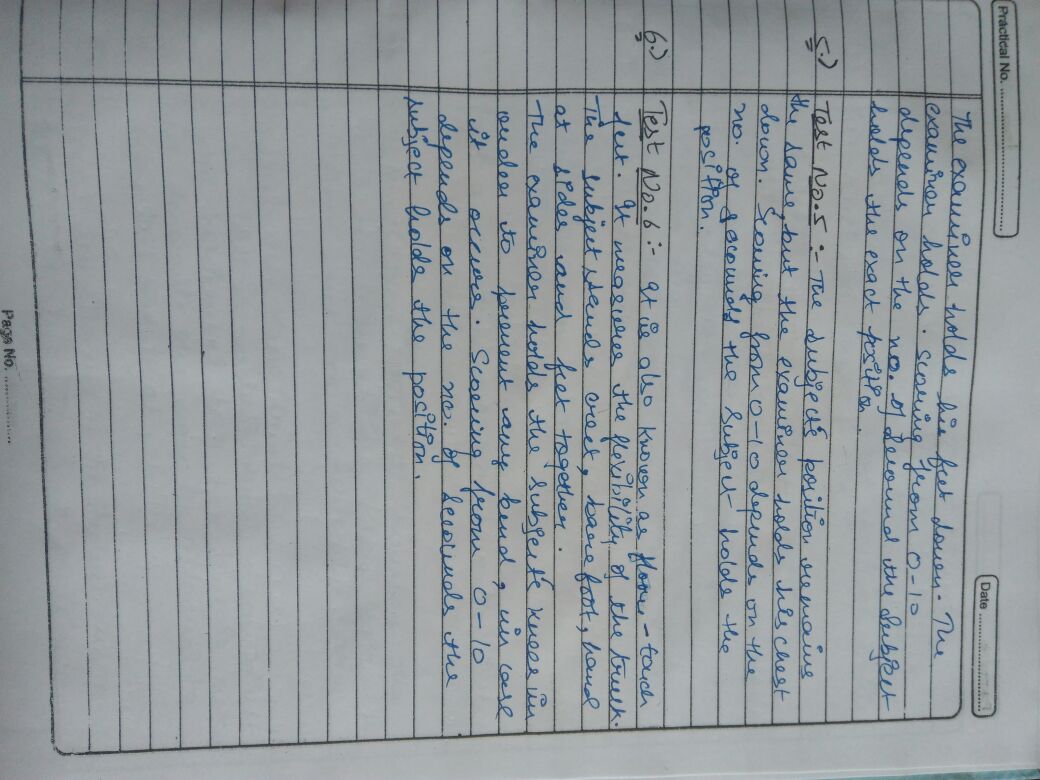 Practical No. ..................
Date ..................
The examiner holds his feet down. The
examiner holds. scoring from 0-10
depends on the no. of second the subject
holds the exact position.
5.) Test No.5 :- The subject's position remains
the same, but the examiner holds his chest
down. Scoring from 0-10 depends on the
no. of seconds the subject holds the
position.
6.) Test No.6 :- It is also known as floor-touch
test. It measures the flexibility of the trunk.
The subject stands erect, bare foot, hand
at sides and feet together.
The examiner holds the subject's knees in
order to prevent any bend, in case
it occurs. Scoring from 0-10
depends on the no. of seconds the
subject holds the position.
Page No. ..................